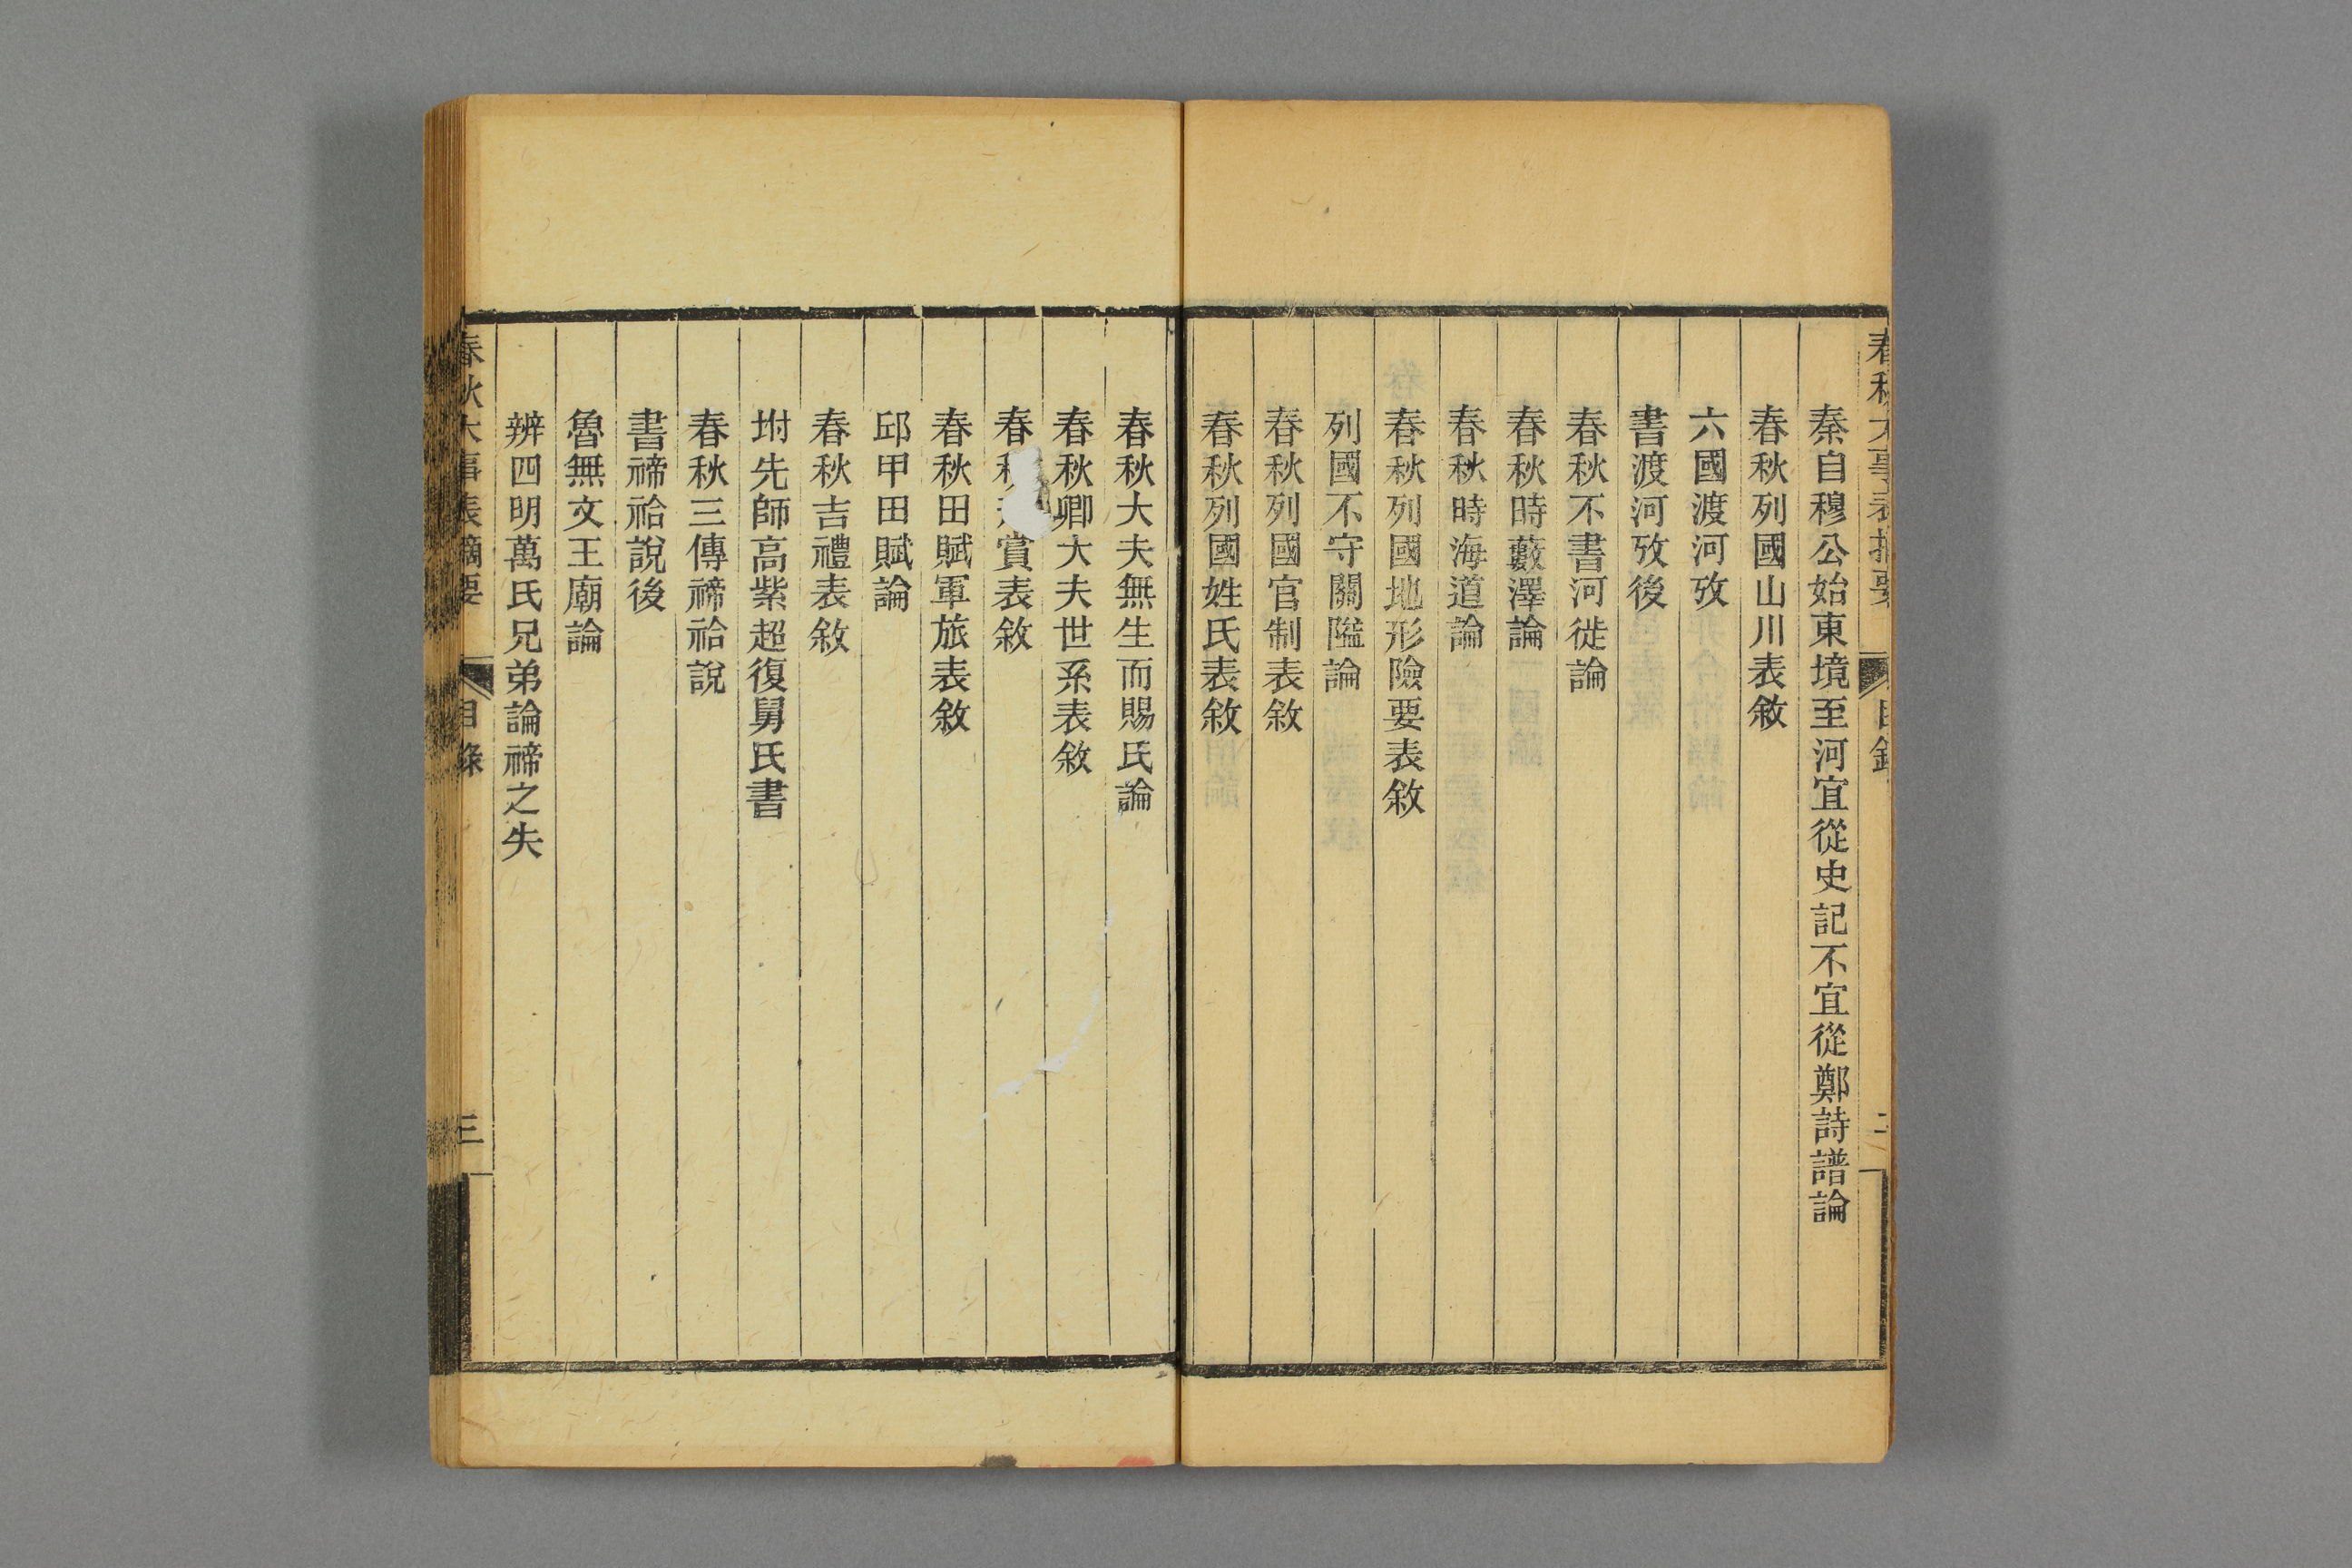 春秋大事表摘要 目錄 二
秦自穆公始東境至河宜從史記不宜從鄭詩譜論
春秋列國山川表敘
六國渡河攷
書渡河攷後
春秋不書河徙論
春秋時藪澤論
春秋時海道論
春秋列國地形險要表敘
列國不守關隘論
春秋列國官制表敘
春秋列國姓氏表敘
春秋大夫無生而賜氏論
春秋卿大夫世系表敘
春 賞表敘
春秋田賦軍旅表敘
邱甲田賦論
春秋吉禮表敘
坿先師高紫超復舅氏書
春秋三傳禘祫說
書禘祫說後
魯無文王廟論
辨四明萬氏兄弟論禘之失
春秋大事表摘要 目錄 三